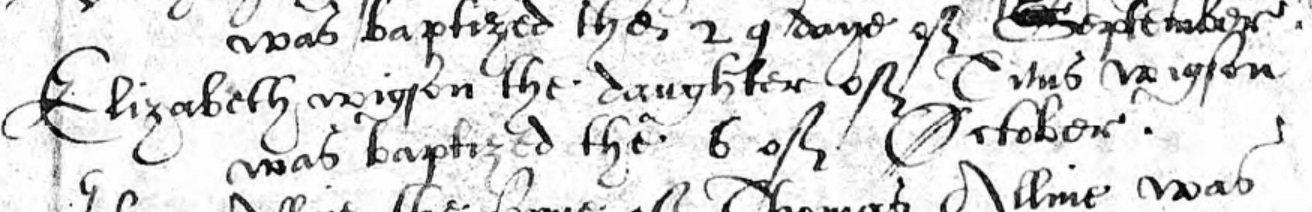 was baptized the 29 daye of September.
Elizabeth wigson the daughter of Titus wigson
was baptized the 6 of October.
the sonne of Thomas Alline was